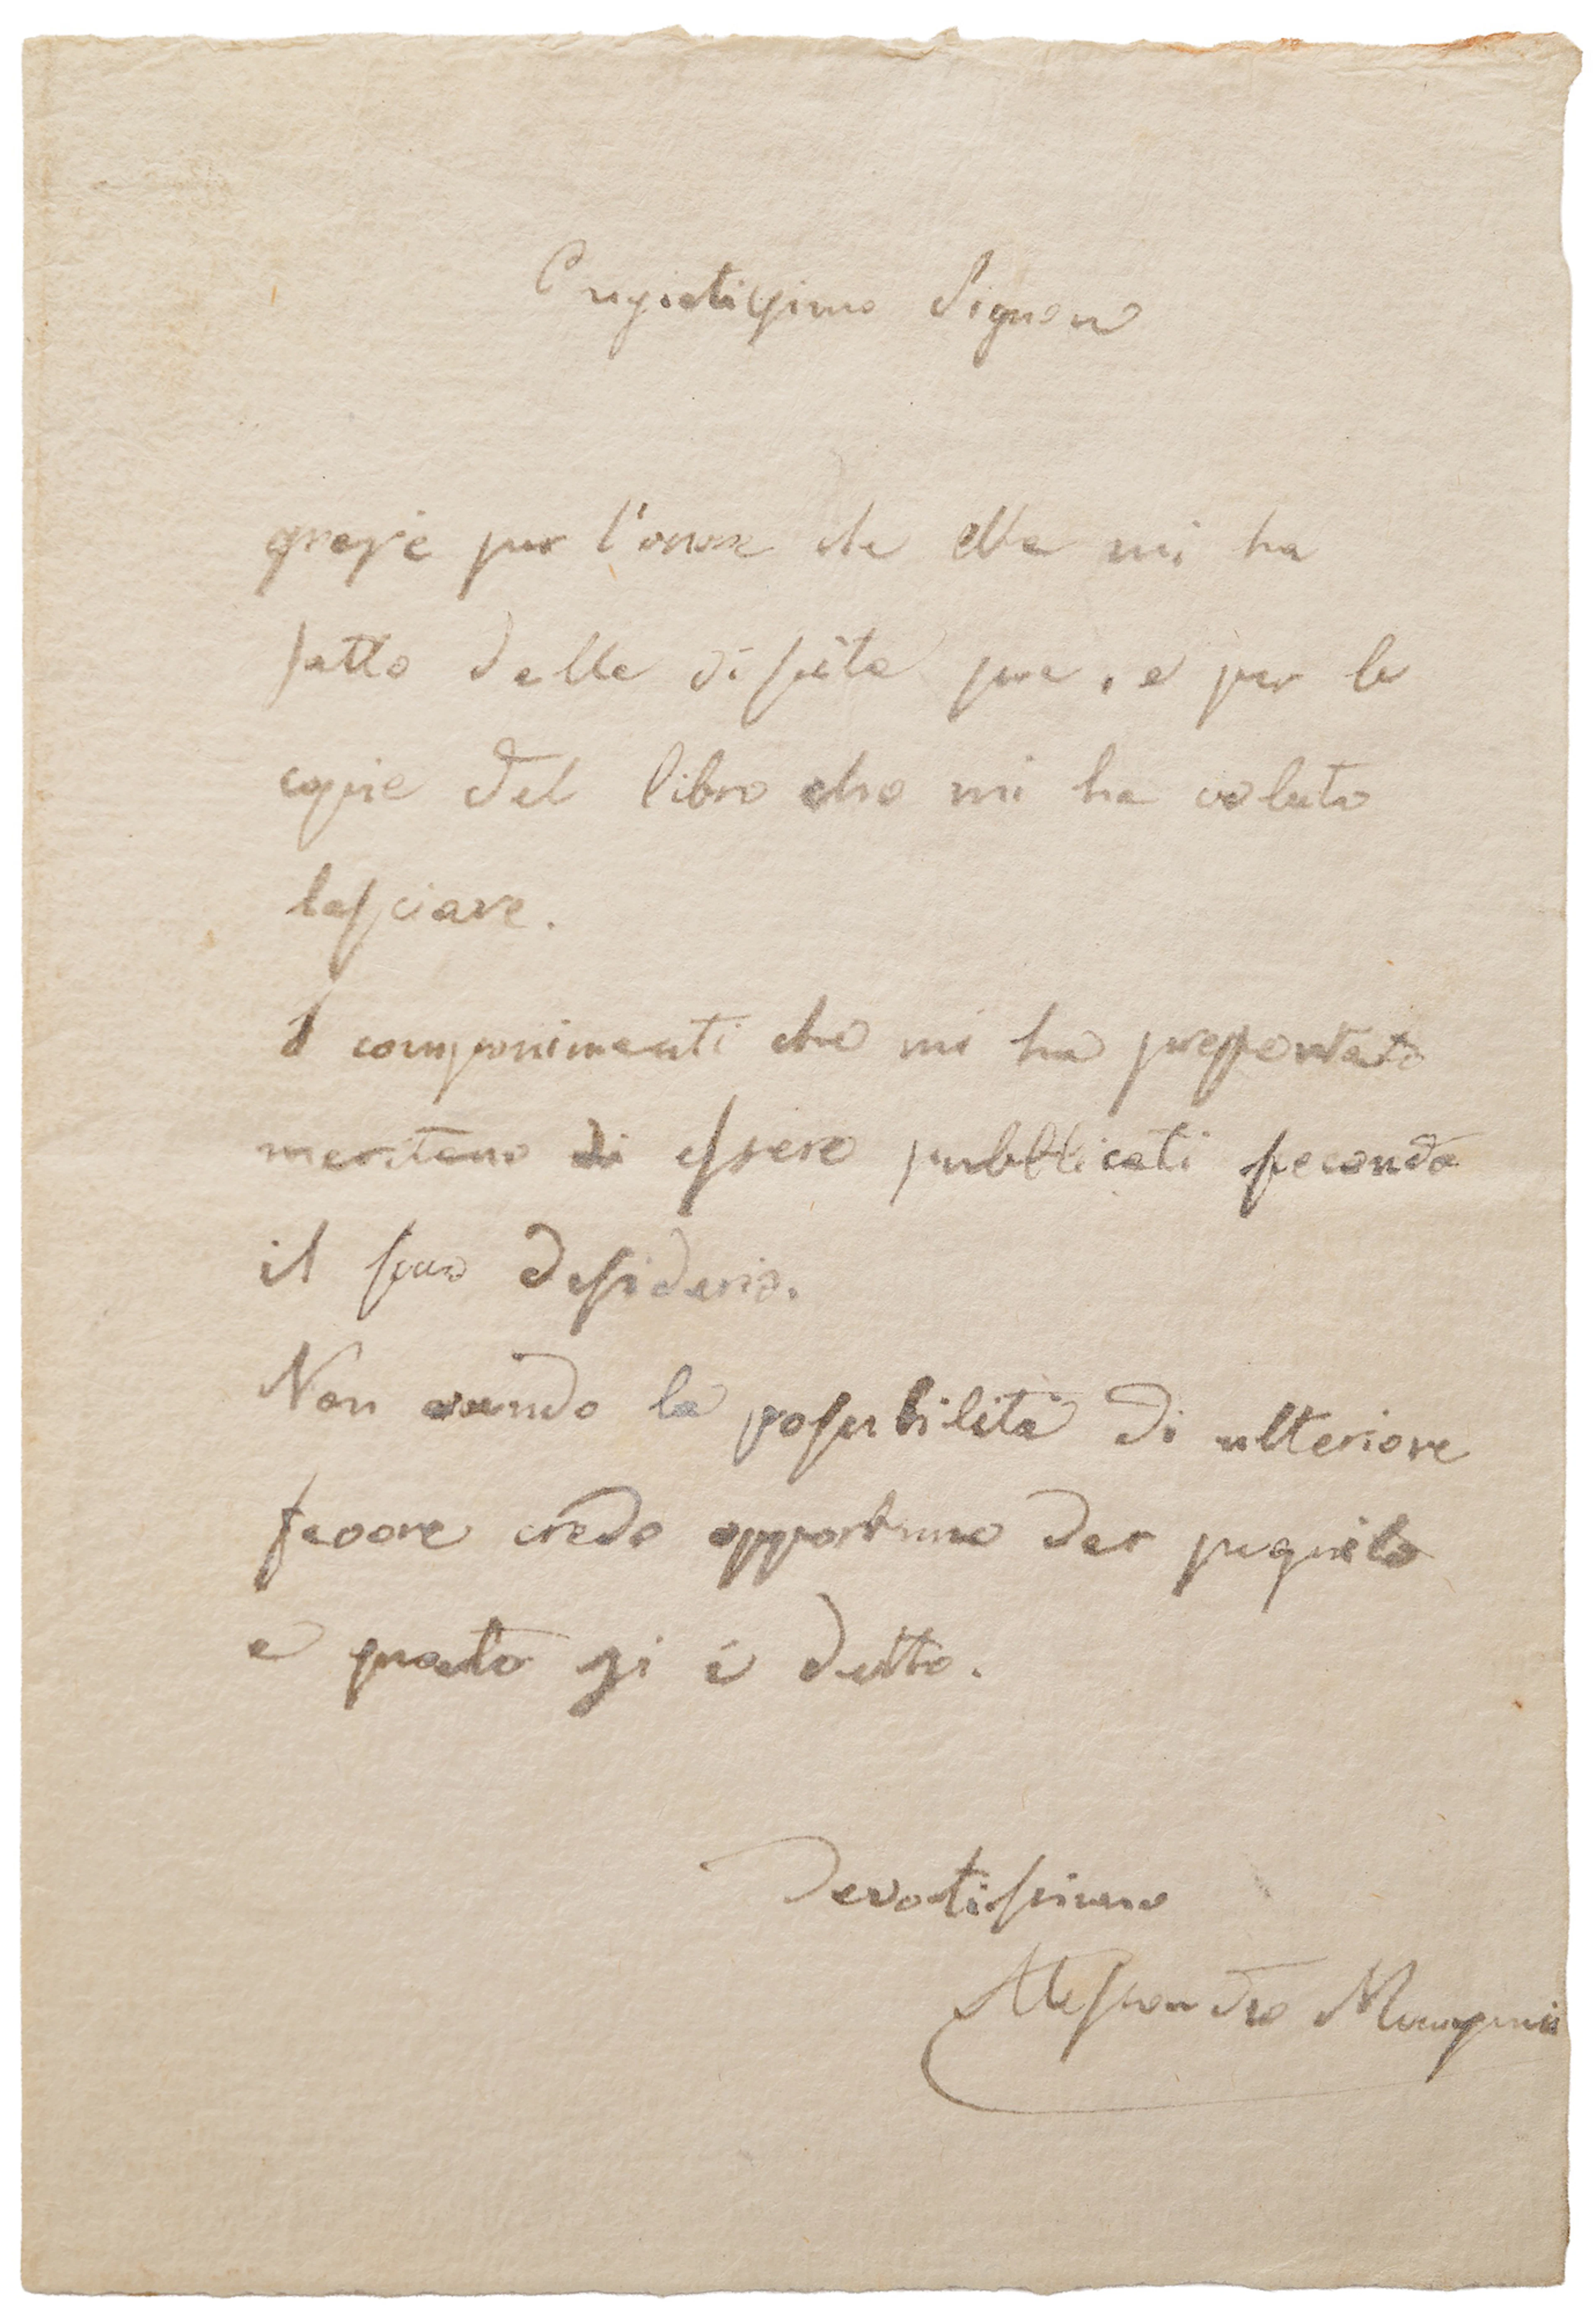 Pregiatissimo Signore
grazie per l'onore che ella mi ha
fatto della visita sua, e per le
copie del libro che mi ha voluto
lasciare.
I componimenti che mi ha presentato
meritano di essere pubblicati secondo
il suo desiderio.
Non avendo la possibilità di ulteriore
favore credo opportuno dar seguito
a quanto si è detto.
Devotissimo
Alessandro